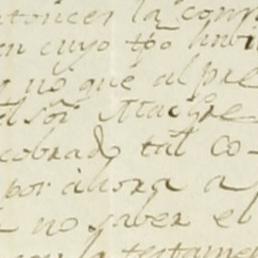 entonces la comp
en cuyo tpo hubi
no que al pre
el sor Maestre
cobrado tal co-
por ahora a
no saber el
con la testame